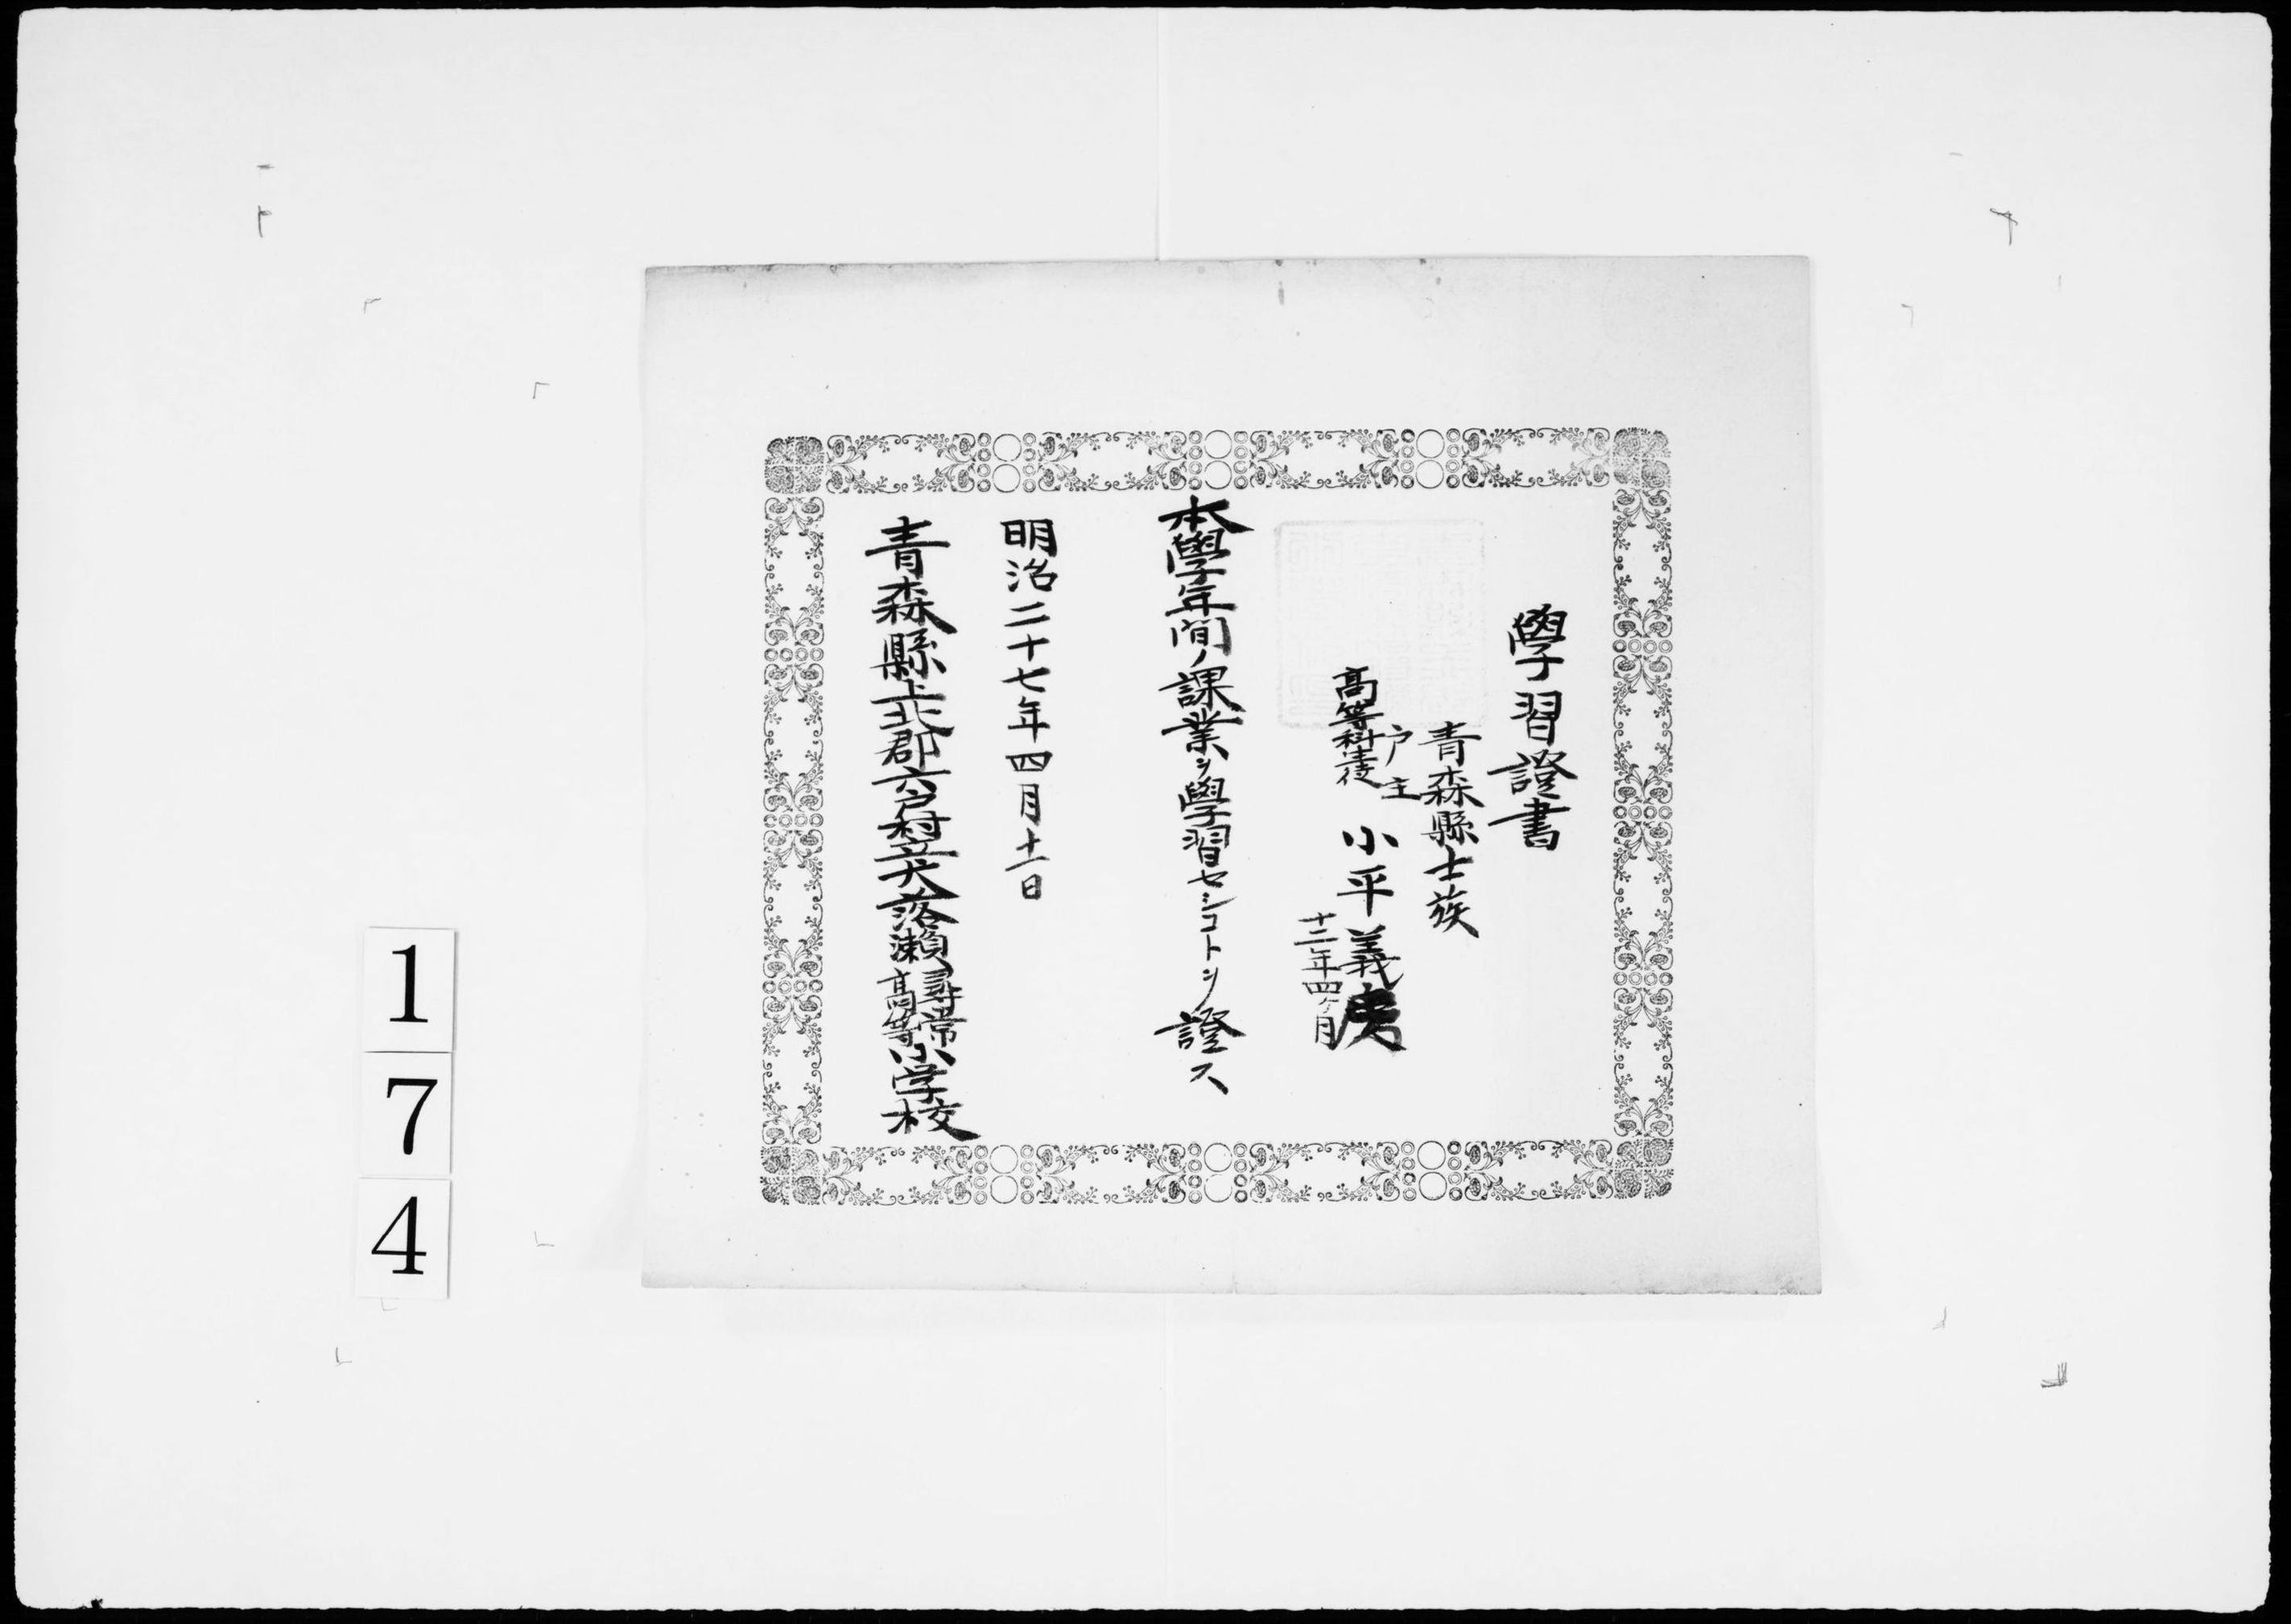 學習證書
青森縣士族
戸主
高等科生徒
小平義房
十二年四ヶ月
本學年間ノ課業ヲ學習セシコトヲ證ス
明治二十七年四月十一日
青森縣上北郡六戸村立犬落瀬尋常高等小学校
174